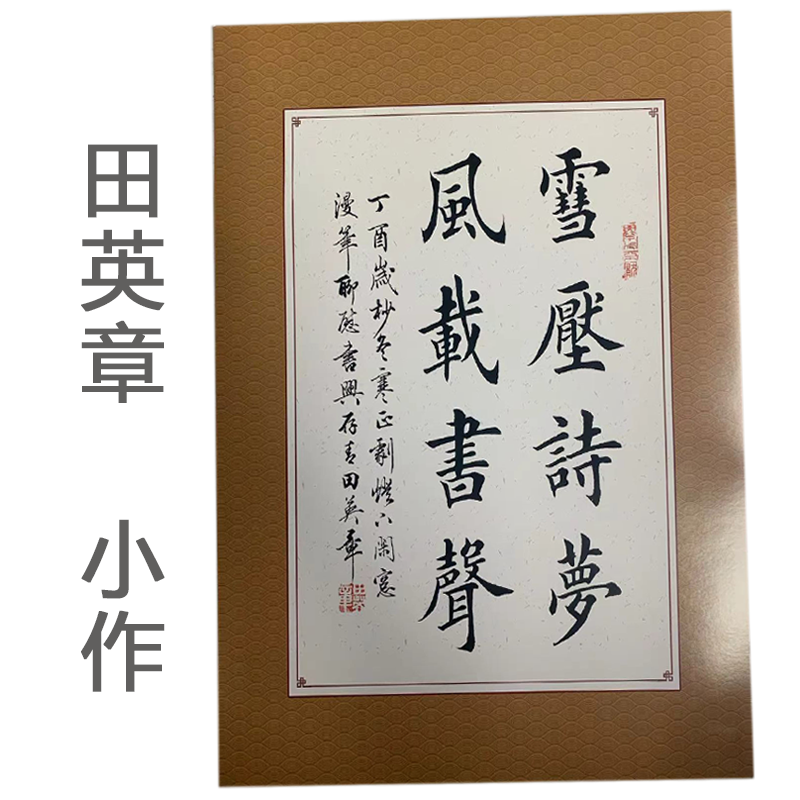 田英章
小作
雪壓詩夢
風載書聲
丁酉歲杪冬寒正劇燈下閑窗
漫筆聊慰書興存青田英章